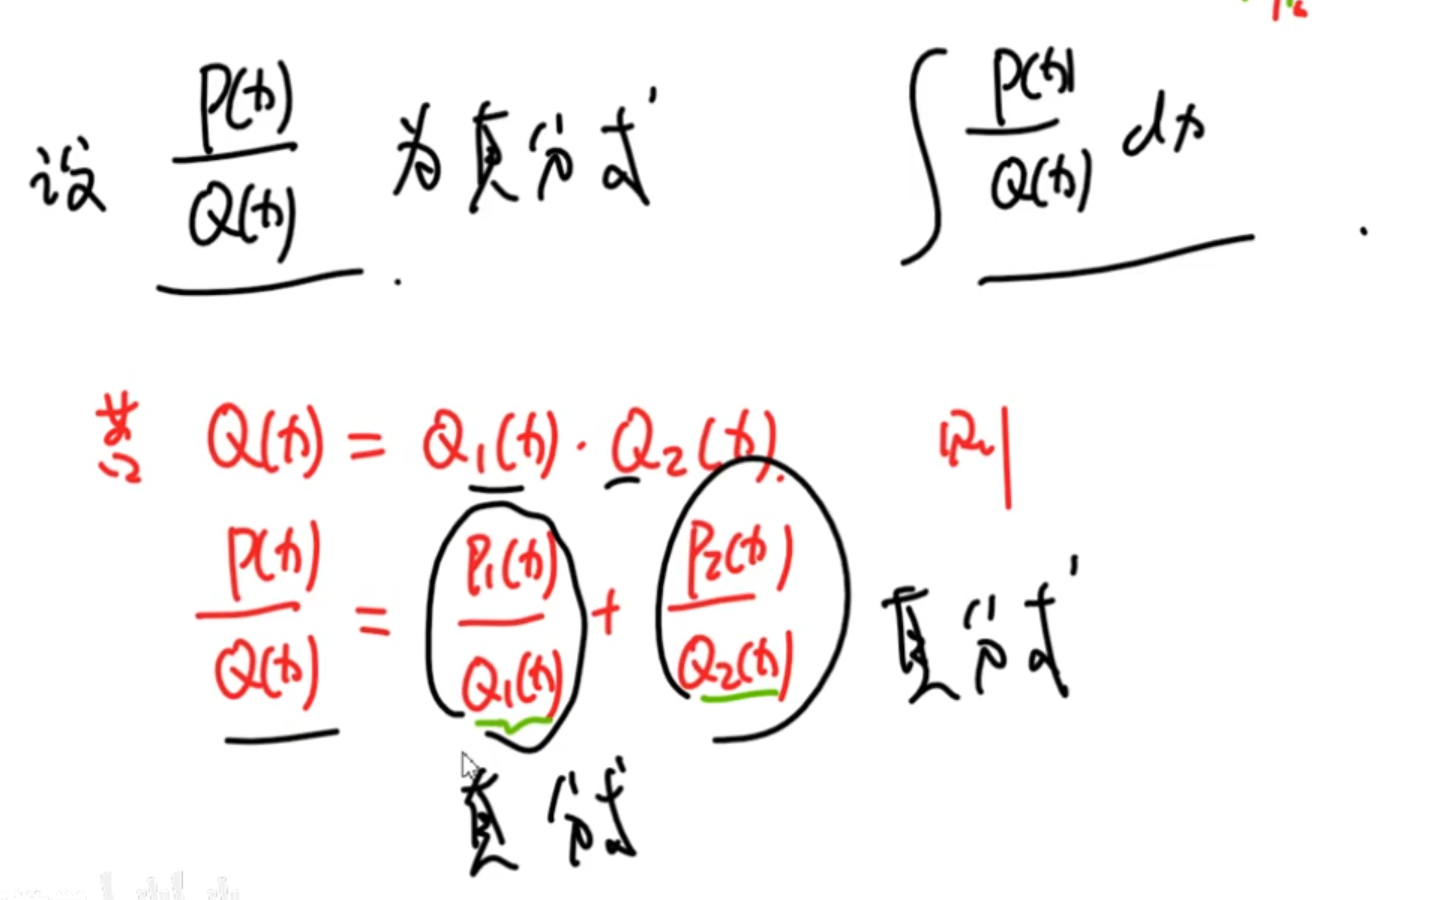 设 P(x)/Q(x) 为真分式 ∫ P(x)/Q(x) dx
若 Q(x) = Q₁(x) · Q₂(x).
P(x)/Q(x) = P₁(x)/Q₁(x) + P₂(x)/Q₂(x) 真分式
真分式